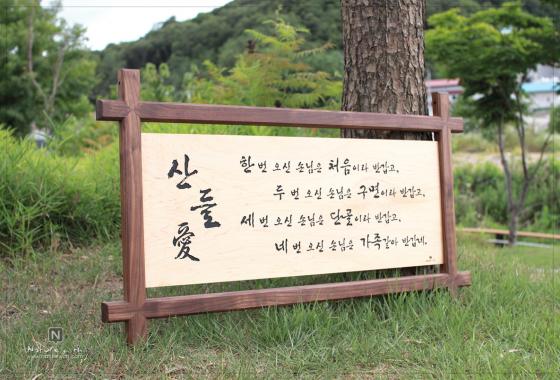 산들愛
한 번 오신 손님은 처음이라 반갑고,
두 번 오신 손님은 구면이라 반갑고,
세 번 오신 손님은 단골이라 반갑고,
네 번 오신 손님은 가족같아 반갑네.
N
Nature